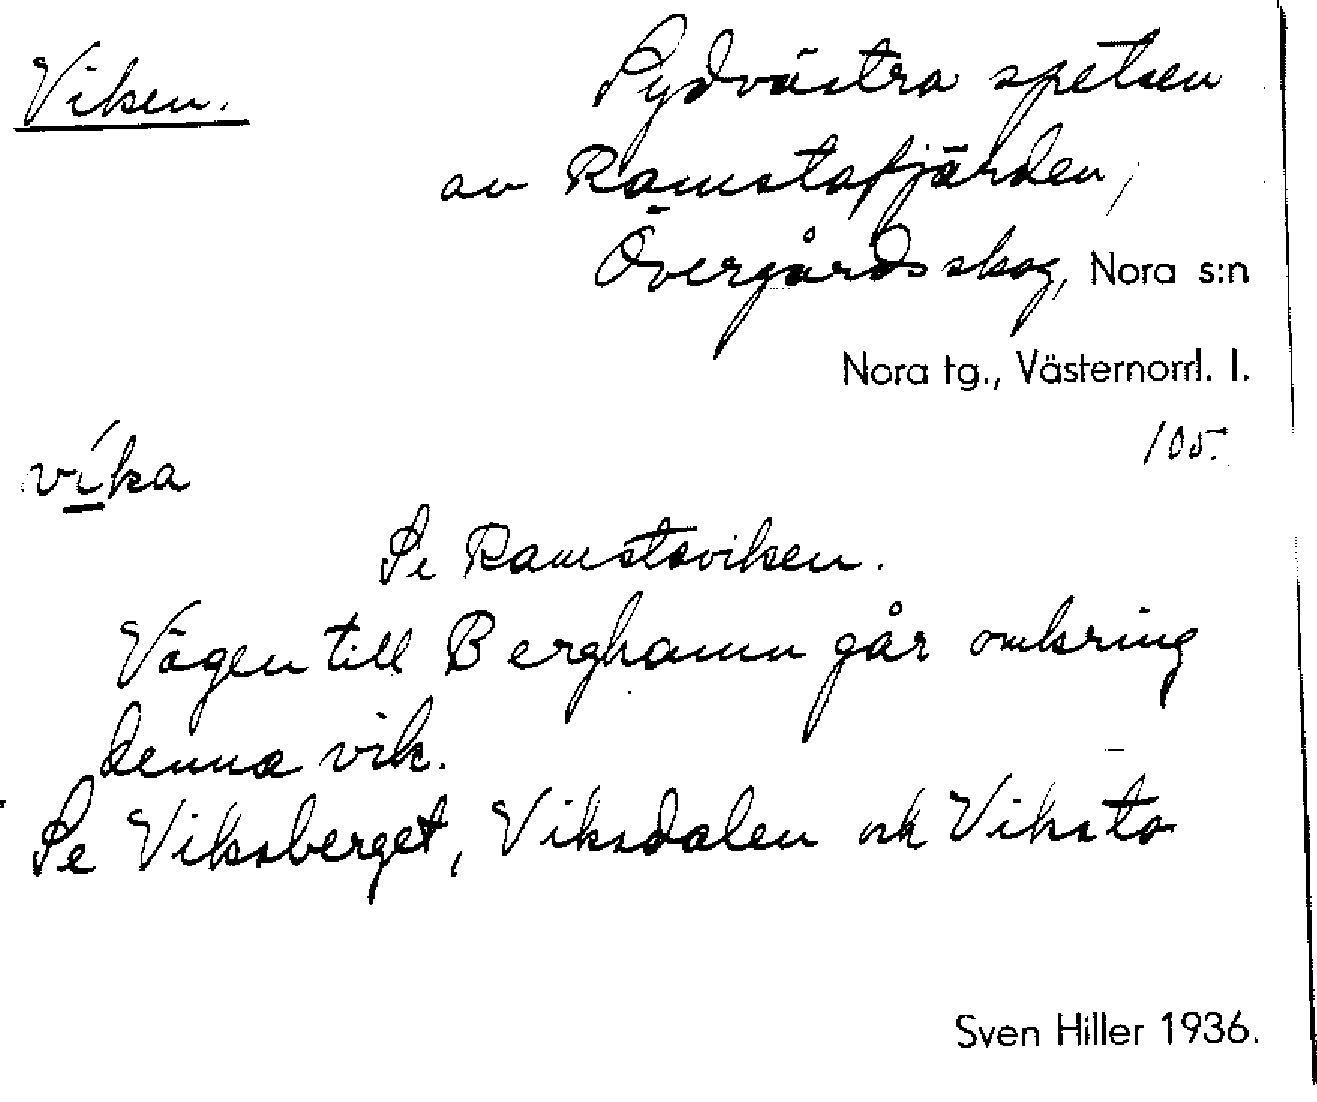 Viken.
Sydvästra spetsen
av Ramstafjärden,
Övergårds skog, Nora s:n
Nora tg., Västernorrl. l.
105.
víka
Se Ramstaviken.
Vägen till Berghamn går omkring
denna vik.
Se Viksberget, Viksdalen och Viksta
Sven Hiller 1936.